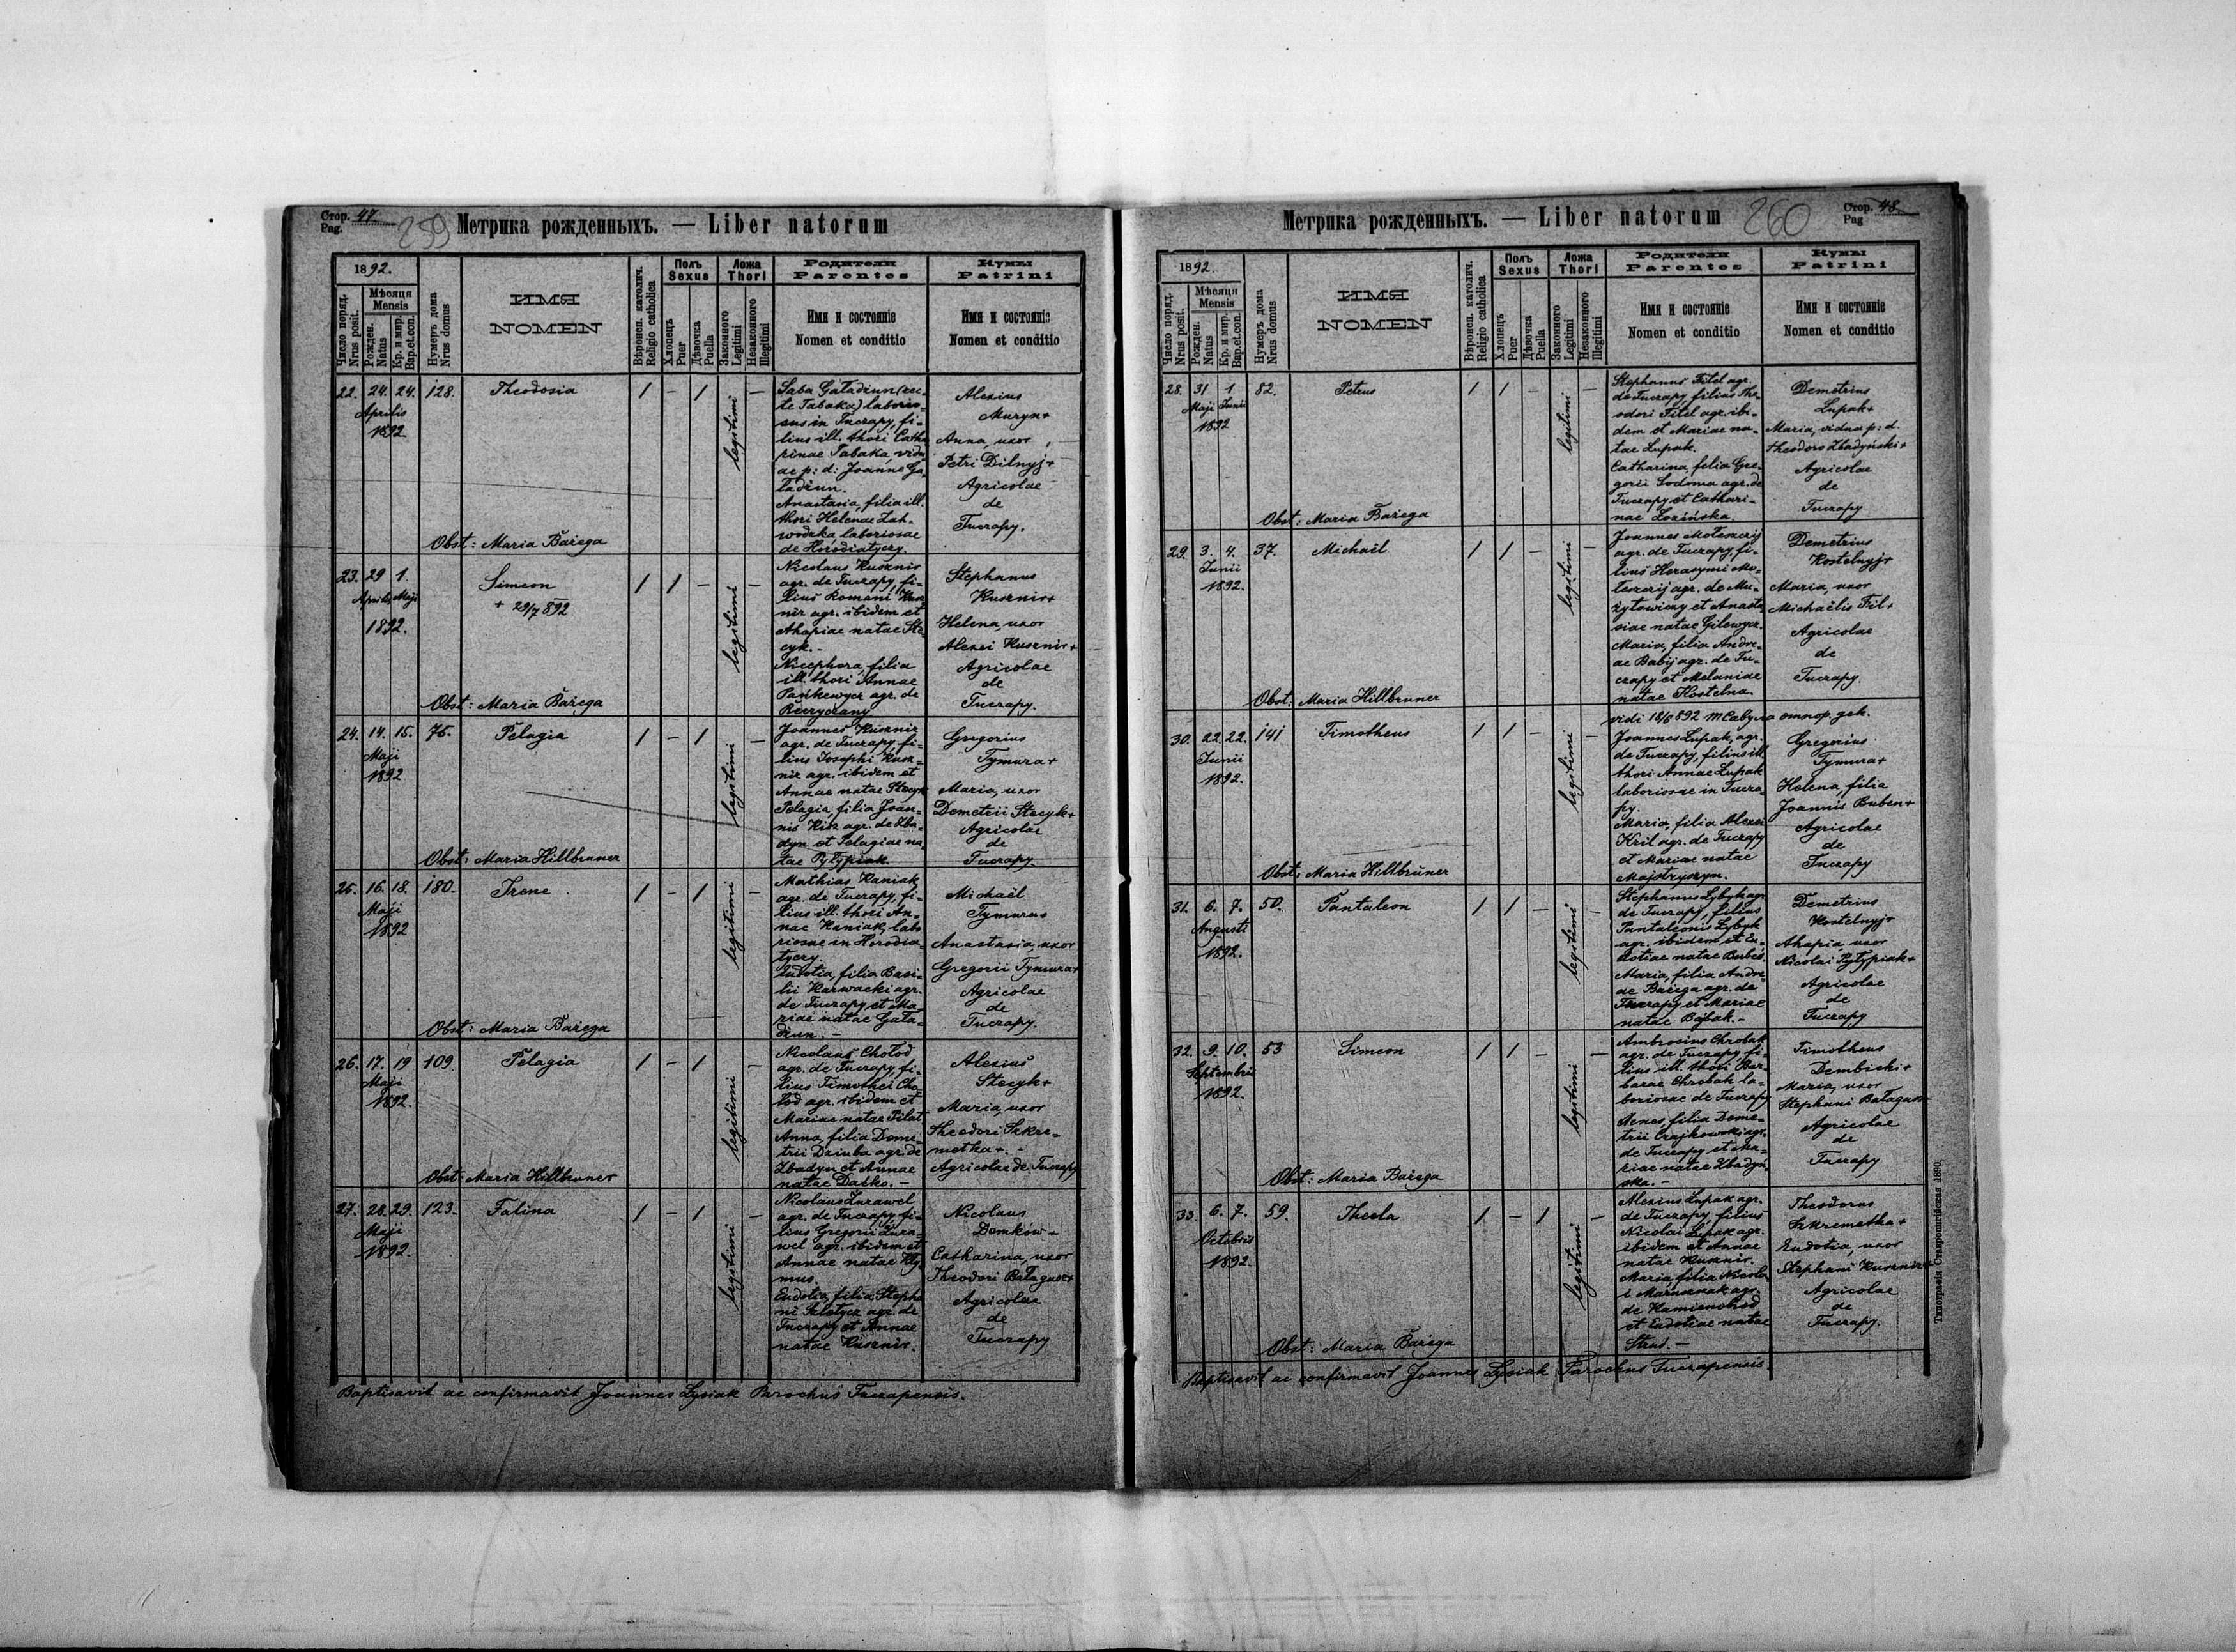 Стор. 47.
Pag.
259
Метрика рожденныхъ. — Liber natorum
1892.
Число поряд.
Nrus posit.
Мѣсяця
Mensis
Рожден.
Natus
Кр. и мир.
Bap.et.con.
Нумеръ дома
Nrus domus
ИМЯ
NOMEN
Вѣроисп. католич.
Religio catholica
Полъ
Sexus
Хлопецъ
Puer
Дѣвочка
Puella
Ложа
Thori
Законного
Legitimi
Незаконного
Illegitimi
Родители
Parentes
Имя и состояніе
Nomen et conditio
Кумы
Patrini
Имя и состояніе
Nomen et conditio
22. 24. 24. 128. Theodosia / – / legitimi –
Aprilis
1892
Saba Gaładiun (rec-
te Tabaka) laborio-
sus in Tuczapy, fi-
lius ill. thori Catha
rinae Tabaka, vidu
ae p: d: Joanne Ga
ładiun.
Anastasia, filia ill.
thori Helenae Zah-
wodzka, laboriosae
de Horodiatyczy.
Alexius
Muryn+
Anna, uxor
Petri Dilnyj+
Agricolae
de
Tuczapy.
Obst: Maria Barega
23. 29 1. Simeon / / – legitimi
Aprilis Maji
1892.
+ 29/7 892
Nicolaus Kusznir
agr. de Tuczapy, fi-
lius Romani Kusz
nir agr. ibidem et
Ahapiae natae Ste
cyk.-
Nicephora, filia
ill. thori Annae
Pańkewycz agr. de
Reczyczany
Stephanus
Kusznir+
Helena, uxor
Alexei Kusznir+
Agricolae
de
Tuczapy.
Obst: Maria Barega
24. 14. 15. 75. Pelagia / – / legitimi –
Maji
1892
Joannes Kusznir
agr. de Tuczapy, fi-
lius Josephi Kusz-
nir agr. ibidem et
Annae natae Stecyk
Pelagia, filia Joan-
nis Kisz agr. de Zba-
dyn et Pelagiae na
tae Pyłypiak.
Gregorius
Tymura+
Maria, uxor
Demetrii Stecyk+
Agricolae
de
Tuczapy.
Obst: Maria Hillbruner
25. 16. 18. 180. Irene / – / legitimi –
Maji
1892
Mathias Kaniak
agr. de Tuczapy, fi-
lius ill. thori An-
nae Kaniak, labo
riosae in Horodia-
tyczy.
Eudotia, filia Basi-
lii Karwacki agr.
de Tuczapy et Ma-
riae natae Gała-
diun.-
Michaël
Tymurus
Anastasia, uxor
Gregorii Tymura+
Agricolae
de
Tuczapy.
Obst: Maria Barega
26. 17. 19 109. Pelagia / – / legitimi –
Maji
1892.
Nicolaus Chołod
agr. de Tuczapy, fi-
lius Timothei Cho-
łod agr. ibidem et
Mariae natae Pilat
Anna, filia Deme-
trii Dziuba agr. de
Zbadyn et Annae
natae Daśko.-
Alexius
Stecyk+
Maria, uxor
Theodori Szkre-
metka+.
Agricolae de Tuczapy
Obst: Maria Hillbruner
27. 28. 29. 123. Falina / – / legitimi –
Maji
1892.
Nicolaus Żurawel
agr. de Tuczapy fi-
lius Gregorii Żura-
wel agr. ibidem et
Annae natae Kly
mus.
Eudotia, filia Stepha
ni Szlotycz agr. de
Tuczapy et Annae
natae Kusznir.
Nicolaus
Demków+
Catharina, uxor
Theodori Bałagus+
Agricolae
de
Tuczapy
Baptisavit ac confirmavit Joannes Lysiak Parochus Tuczapensis.
Метрика рожденныхъ. — Liber natorum
260
Стор. 48.
Pag
1892.
Число поряд.
Nrus posit.
Мѣсяця
Mensis
Рожден.
Natus
Кр. и мир.
Bap.et.con.
Нумеръ дома
Nrus domus
ИМЯ
NOMEN
Вѣроисп. католич.
Religio catholica
Полъ
Sexus
Хлопецъ
Puer
Дѣвочка
Puella
Ложа
Thori
Законного
Legitimi
Незаконного
Illegitimi
Родители
Parentes
Имя и состояніе
Nomen et conditio
Кумы
Patrini
Имя и состояніе
Nomen et conditio
28. 31 1 82. Petrus / / – legitimi –
Maji Junii
1892
Stephanus Fitel agr.
de Tuczapy, filius The
odori Fitel agr. ibi-
dem et Mariae na-
tae Lupak.
Catharina, filia Gre-
gorii Sodoma agr. de
Tuczapy et Cathari-
nae Łozińska.
Demetrius
Lupak+
Maria, vidua p: d.
theodoro Zbadyński+
Agricolae
de
Tuczapy
Obst: Maria Barega
29. 3. 4. 37. Michaël / / – legitimi –
Junii
1892.
agr. de Tuczapy, fi-
lius Herasymi Mo-
agr. de Mu-
żyłowiczy et Anasta
siae natae Gilewycz.
Maria, filia Andre-
ae Babij agr. de Tu-
czapy et Melaniae
natae Kostelna
Demetrius
Kostelnyj+
Maria, uxor
Michaëlis Fil+
Agricolae
de
Tuczapy.
Obst: Maria Hillbruner
vidi 18/6 892
30. 22. 22. 141 Timotheus / / – legitimi –
Junii
1892.
Joannes Lupak, agr.
de Tuczapy, filius ill.
thori Annae Lupak
laboriosae in Tucza-
py.
Maria, filia Alexii
Kril agr. de Tuczapy
et Mariae natae
Majstryszyn.
Gregorius
Tymura+
Helena, filia
Joannis Buben+
Agricolae
de
Tuczapy
Obst: Maria Hillbruner
31. 6. 7. 50. Pantaleon / / – legitimi –
Augusti
1892.
Stephanus Łybyk agr
de Tuczapy, filius
Pantaleonis Łybyk
agr. ibidem et Eu-
dotiae natae Bubes.
Maria, filia Andre-
ae Barega agr. de
Tuczapy et Mariae
natae Babak.-
Demetrius
Kostelnyj+
Ahapia, uxor
Nicolai Pyłypiak+
Agricolae
de
Tuczapy
32. 9. 10. 53 Simeon / / – legitimi –
Septembris
1892.
Ambrosius Chrobak
agr. de Tuczapy, fi-
lius ill. thori Bar-
barae Chrobak la-
boriosae de Tuczapy
Aenes, filia Deme-
trii Czajkowski agr.
de Tuczapy et Ma-
riae natae Zbadyn-
ska.-
Timotheus
Dembicki+
Maria, uxor
Stephani Bałagus+
Agricolae
de
Tuczapy
Obst: Maria Barega
33. 6. 7. 59. Thecla / – / legitimi –
Octobris
1892.
Alexius Lupak agr.
de Tuczapy, filius
Nicolai Lupak agr.
ibidem et Annae
natae Kusznir.
Maria filia Nicola
i Marusznak agr.
de Kamienobrod
et Eudotiae natae
Strus.-
Theodorus
Szkremetka+
Eudotia, uxor
Stephani Kusznir+
Agricolae
de
Tuczapy.
Obst: Maria Barega
Baptisavit ac confirmavit Joannes Lysiak Parochus Tuczapensis.
Типографія Ставропигійская 1890.